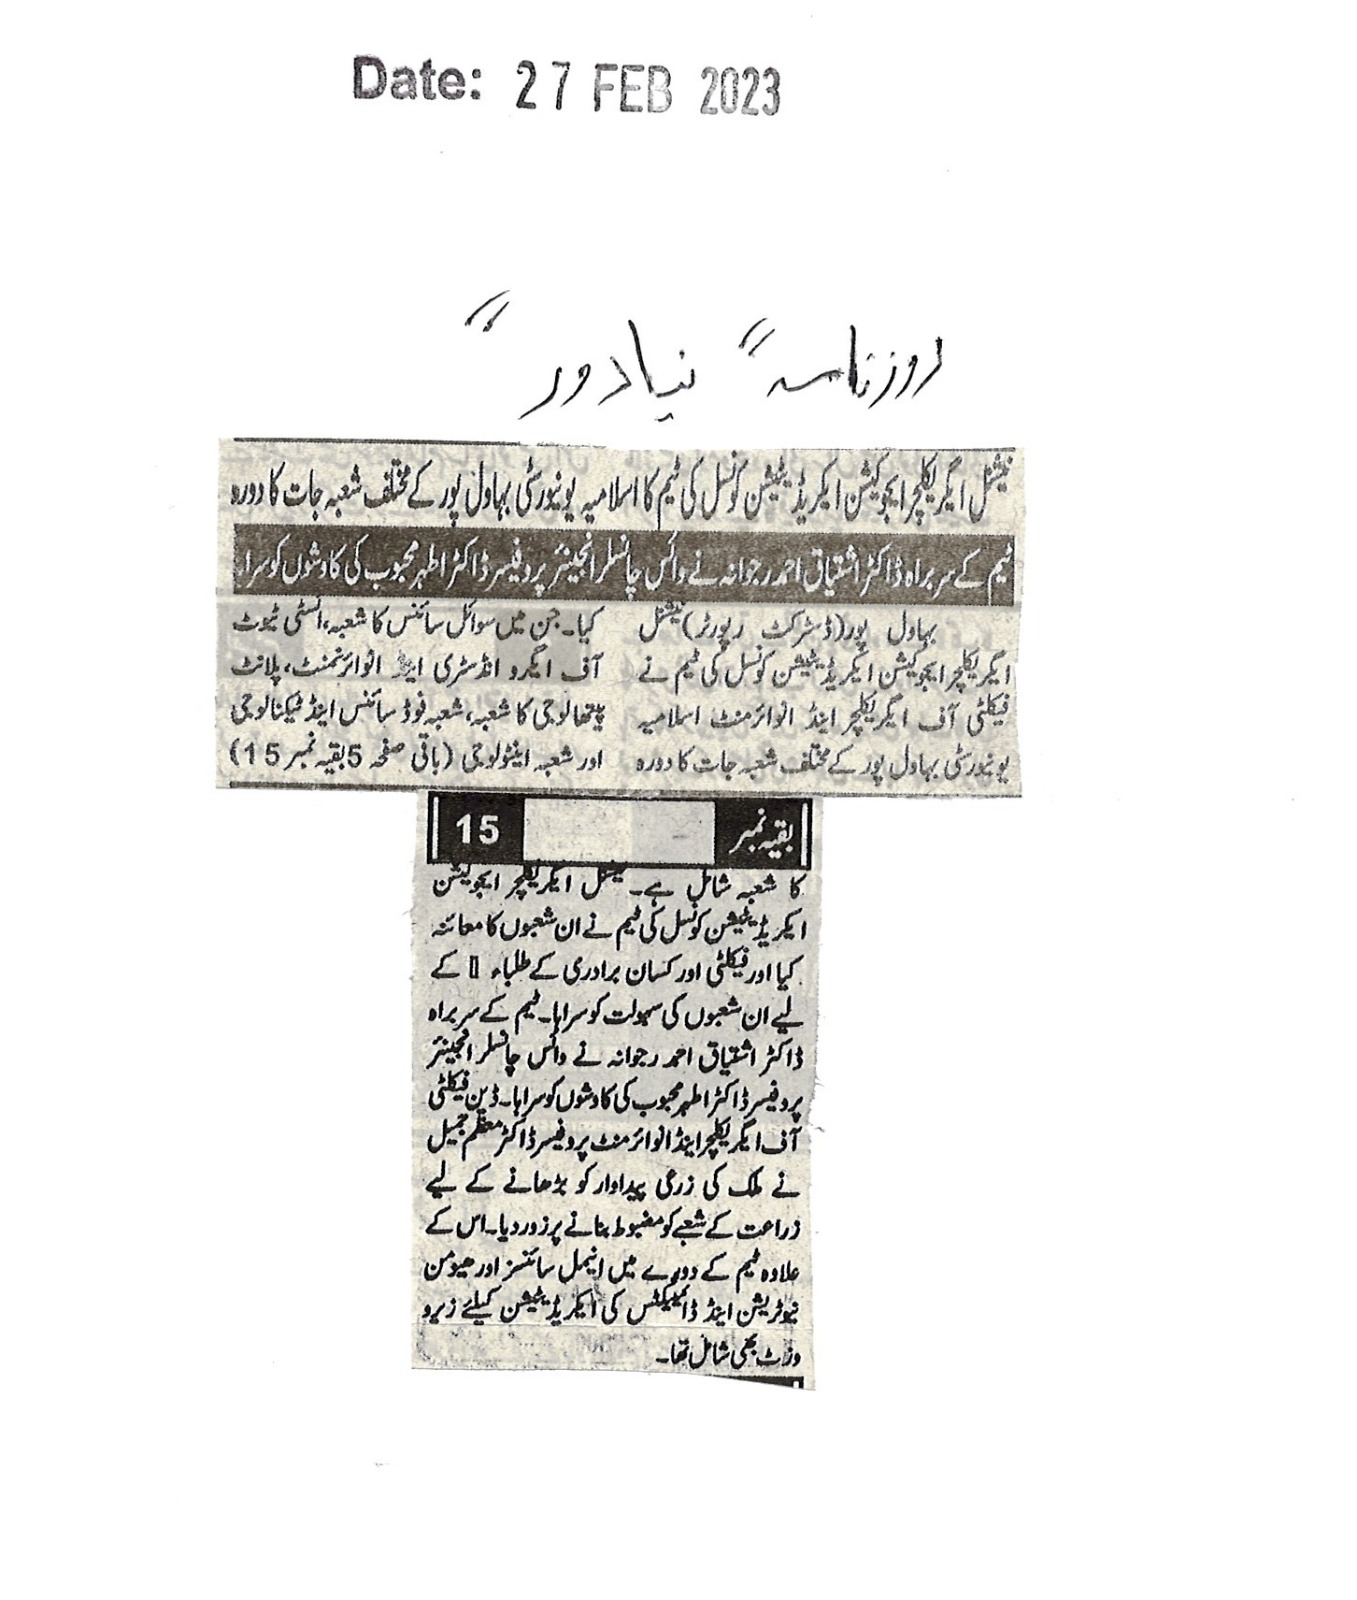 Date: 27 FEB 2023
روزنامہ " نیا دور "
نیشنل ایگریکلچر ایجوکیشن ایکریڈیٹیشن کونسل کی ٹیم کا اسلامیہ یونیورسٹی بہاول پور کے مختلف شعبہ جات کا دورہ
ٹیم کے سربراہ ڈاکٹر اشتیاق احمد رجوانہ نے وائس چانسلر انجینئر پروفیسر ڈاکٹر اطہر محبوب کی کاوشوں کو سراہا
بہاول پور (ڈسٹرکٹ رپورٹر) نیشنل
ایگریکلچر ایجوکیشن ایکریڈیٹیشن کونسل کی ٹیم نے
فیکلٹی آف ایگریکلچر اینڈ انوائرمنٹ اسلامیہ
یونیورسٹی بہاول پور کے مختلف شعبہ جات کا دورہ
کیا۔ جن میں سوائل سائنس کا شعبہ، انسٹی ٹیوٹ
آف ایگرو انڈسٹری اینڈ انوائرنمنٹ، پلانٹ
پیتھالوجی کا شعبہ، شعبہ فوڈ سائنس اینڈ ٹیکنالوجی
اور شعبہ اینٹولوجی (باقی صفحہ 5 بقیہ نمبر 15)
بقیہ نمبر 15
کا شعبہ شامل ہے۔ نیشنل ایگریکلچر ایجوکیشن
ایکریڈیٹیشن کونسل کی ٹیم نے ان شعبوں کا معائنہ
کیا اور فیکلٹی اور کسان برادری کے طلباء کے
لیے ان شعبوں کی سہولت کو سراہا۔ ٹیم کے سربراہ
ڈاکٹر اشتیاق احمد رجوانہ نے وائس چانسلر انجینئر
پروفیسر ڈاکٹر اطہر محبوب کی کاوشوں کو سراہا۔ ڈین فیکلٹی
آف ایگریکلچر اینڈ انوائرمنٹ پروفیسر ڈاکٹر معظم جمیل
نے ملک کی زرعی پیداوار کو بڑھانے کے لیے
زراعت کے شعبے کو مضبوط بنانے پر زور دیا۔ اس کے
علاوہ ٹیم کے دورے میں اینیمل سائنسز اور ہیومن
نیوٹریشن اینڈ ڈائیٹیکٹس کی ایکریڈیٹیشن کیلئے زیرو
وزٹ بھی شامل تھا۔